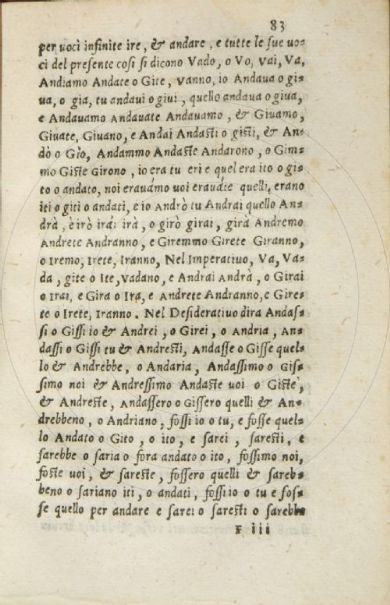 83
per uoci infinite ire, & andare, e tutte le sue uo=
ci del presente cosi si dicono Vado, o Vo, vai, Va,
Andiamo Andate o Gite, vanno, io Andaua o gi=
ua, o gia, tu andaui o giui, quello andaua o giua,
e Andauamo Andauate Andauamo, & Giuamo,
Giuate, Giuano, e Andai Andasti o gisti, & An=
dò o Gìo, Andammo Andaste Andarono, o Gim=
mo Giste Girono, io era tu eri e quel era ito o gi=
to o andato, noi erauámo uoi erauáte quelli, erano
iti o giti o andati, e io Andrò tu Andrai quello An=
drà, e irò irai irà, o girò girai, girà Andremo
Andrete Andranno, e Giremmo Girete Giranno,
o Iremo, Irete, Iranno, Nel Imperatiuo, Va, Va=
da, gite o Ite, vadano, e Andrai Andrà, o Girai
o Irai, e Gira o Ira, e Andrete Andranno, e Gire=
te o Irete, Iranno. Nel Desideratiuo dira Andas=
si o Gissi io & Andrei, o Girei, o Andria, An=
dassi o Gissi tu & Andresti, Andasse o Gisse quel=
lo & Andrebbe, o Andaria, Andassimo o Gis=
simo noi & Andressimo Andaste uoi o Giste,
& Andreste, Andassero o Gissero quelli & An=
drebbeno, o Andriano, fossi io o tu, e fosse quel=
lo Andato o Gito, o ito, e sarei, saresti, e
sarebbe o saria o fora andato o ito, fossimo noi,
foste uoi, & sareste, fossero quelli & sareb=
beno o sariano iti, o andati, fossi io o tu e fos=
se quello per andare e sarei o saresti o sarebbe
F iii